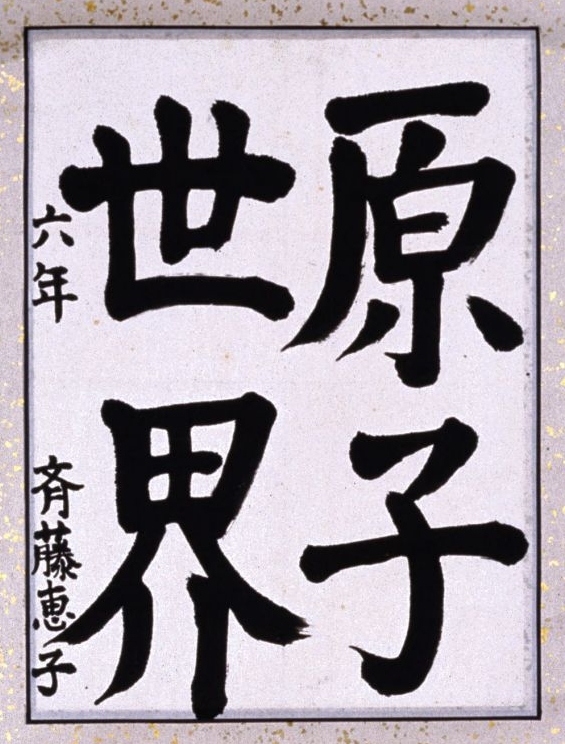 原子
世界
六年 斉藤恵子